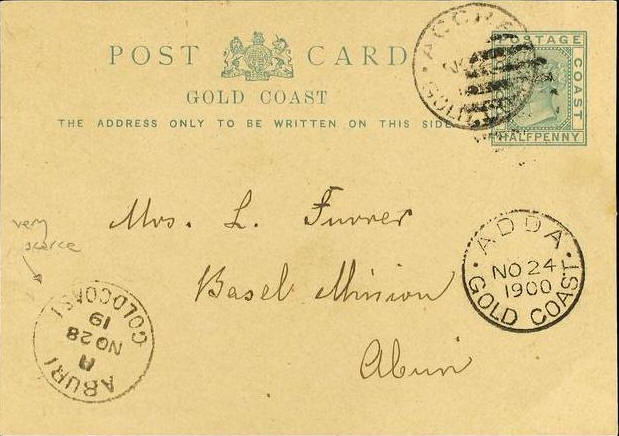 POST CARD
GOLD COAST
THE ADDRESS ONLY TO BE WRITTEN ON THIS SIDE
POSTAGE
COAST
HALFPENNY
ACCRA
NO
GOLD
Mrs. L. Furrer
Basel Mission
Aburi
very
scarce
ADDA
NO 24
1900
GOLD COAST
ABURI
A
NO 28
19
GOLD COAST